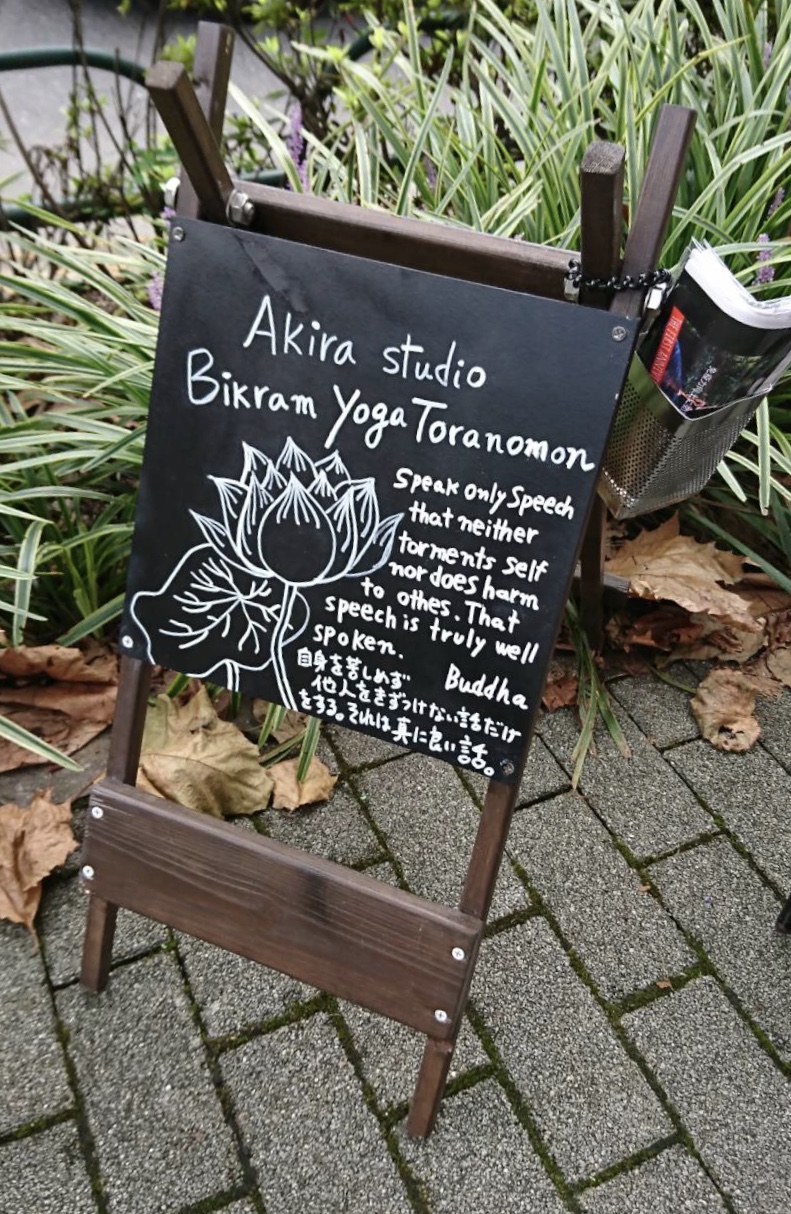 Akira studio
Bikram Yoga Toranomon
Speak only Speech
that neither
torments self
nor does harm
to othes. That
speech is truly well
spoken.
Buddha
自身を苦しめず
他人をきずつけない話だけ
をする。それは真に良い話。